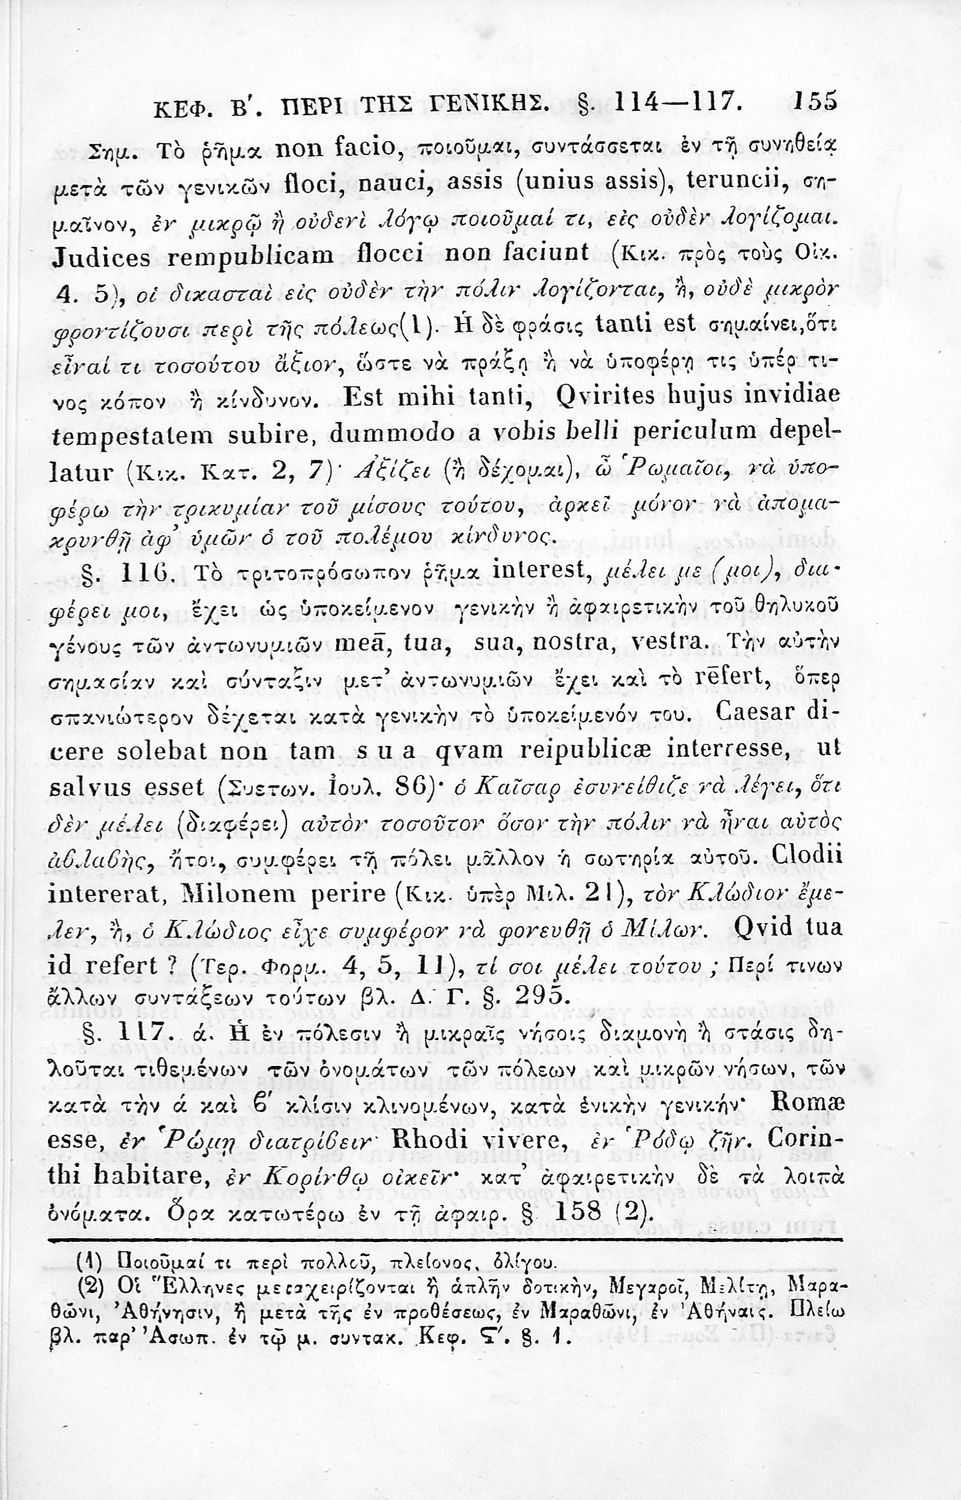 ΚΕΦ. Β΄. ΠΕΡΙ ΤΗΣ ΓΕΝΙΚΗΣ. §. 114—117. 155
Σημ. Τὸ ῥῆμα non facio, ποιοῦμαι, συντάσσεται ἐν τῇ συνηθείᾳ
μετὰ τῶν γενικῶν floci, nauci, assis (unius assis), teruncii, ση-
μαῖνον, ἐν μικρῷ ἢ οὐδενὶ λόγῳ ποιοῦμαί τι, εἰς οὐδὲν λογίζομαι.
Judices rempublicam flocci non faciunt (Κικ. πρὸς τοὺς Οἰκ.
4. 5), οἱ δικασταὶ εἰς οὐδὲν τὴν πόλιν λογίζονται, ἢ, οὐδὲ μικρὸν
φροντίζουσι περὶ τῆς πόλεως(1). Ἡ δὲ φράσις tanti est σημαίνει,ὅτι
εἶναί τι τοσούτου ἄξιον, ὥστε νὰ πράξῃ ἢ νὰ ὑποφέρῃ τις ὑπέρ τι-
νος κόπον ἢ κίνδυνον. Est mihi tanti, Qvirites hujus invidiae
tempestatem subire, dummodo a vobis belli periculum depel-
latur (Κικ. Κατ. 2, 7)· Ἀξίζει (ἢ δέχομαι), ὦ Ῥωμαῖοι, νὰ ὑπο-
φέρω τὴν τρικυμίαν τοῦ μίσους τούτου, ἀρκεῖ μόνον νὰ ἀπομα-
κρυνθῇ ἀφ᾽ ὑμῶν ὁ τοῦ πολέμου κίνδυνος.
§. 116. Τὸ τριτοπρόσωπον ῥῆμα interest, μέλει με (μοι), δια-
φέρει μοι, ἔχει ὡς ὑποκείμενον γενικὴν ἢ ἀφαιρετικὴν τοῦ θηλυκοῦ
γένους τῶν ἀντωνυμιῶν meā, tua, sua, nostra, vestra. Τὴν αὐτὴν
σημασίαν καὶ σύνταξιν μετ᾽ ἀντωνυμιῶν ἔχει καὶ τὸ rēfert, ὅπερ
σπανιώτερον δέχεται κατὰ γενικὴν τὸ ὑποκείμενόν του. Caesar di-
cere solebat non tam s u a qvam reipublicæ interresse, ut
salvus esset (Συετων. Ἰουλ. 86)· ὁ Καῖσαρ ἐσυνείθιζε νὰ λέγει, ὅτι
δὲν μέλει (διαφέρει) αὐτὸν τοσοῦτον ὅσον τὴν πόλιν νὰ ἦναι αὐτὸς
ἀβλαβὴς, ἤτοι, συμφέρει τῇ πόλει μᾶλλον ἡ σωτηρία αὐτοῦ. Clodii
intererat, Milonem perire (Κικ. ὑπὲρ Μιλ. 21), τὸν Κλώδιον ἔμε-
λεν, ἢ, ὁ Κλώδιος εἶχε συμφέρον νὰ φονευθῇ ὁ Μίλων. Qvid tua
id refert ? (Τερ. Φορμ. 4, 5, 11), τί σοι μέλει τούτου ; Περί τινων
ἄλλων συντάξεων τούτων βλ. Δ. Γ. §. 295.
§. 117. ά. Ἡ ἐν πόλεσιν ἢ μικραῖς νήσοις διαμονὴ ἢ στάσις δη-
λοῦται τιθεμένων τῶν ὀνομάτων τῶν πόλεων καὶ μικρῶν νήσων, τῶν
κατὰ τὴν ά καὶ β΄ κλίσιν κλινομένων, κατὰ ἑνικὴν γενικήν· Romæ
esse, ἐν Ῥώμῃ διατρίβειν· Rhodi vivere, ἐν Ῥόδῳ ζῆν. Corin-
thi habitare, ἐν Κορίνθῳ οἰκεῖν· κατ᾽ ἀφαιρετικὴν δὲ τὰ λοιπὰ
ὀνόματα. Ὅρα κατωτέρω ἐν τῇ ἀφαιρ. § 158 (2).
(1) Ποιοῦμαί τι περὶ πολλοῦ, πλείονος, ὀλίγου.
(2) Οἱ Ἕλληνες μεταχειρίζονται ἢ ἁπλῆν δοτικὴν, Μεγαροῖ, Μελίτῃ, Μαρα-
θῶνι, Ἀθήνησιν, ἢ μετὰ τῆς ἐν προθέσεως, ἐν Μαραθῶνι, ἐν Ἀθήναις. Πλείω
βλ. παρ᾽ Ἀσωπ. ἐν τῷ μ. συντακ. Κεφ. Ϛ΄. §. 1.